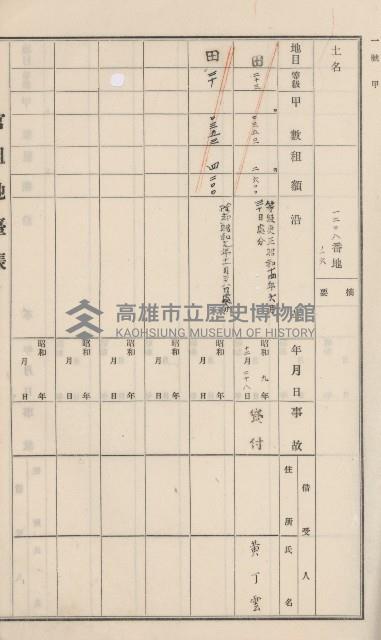 一號甲
土名
一二〇八番地
ノ六
摘要
地目
等級
甲數
租額
沿
年月日
事故
借受人
住所
氏名
田
二十三
〇三五二〇
二六〇〇
等級更正昭和十四年六月
三十日處分
昭和九年
十二月二十八日
貸付
黃丁雲
田
二十
〇三五二
四二〇〇
昭和 年
月 日
昭和 年
月 日
昭和 年
月 日
昭和 年
月 日
昭和 年
月 日
官租地臺帳
高雄市立歷史博物館
KAOHSIUNG MUSEUM OF HISTORY